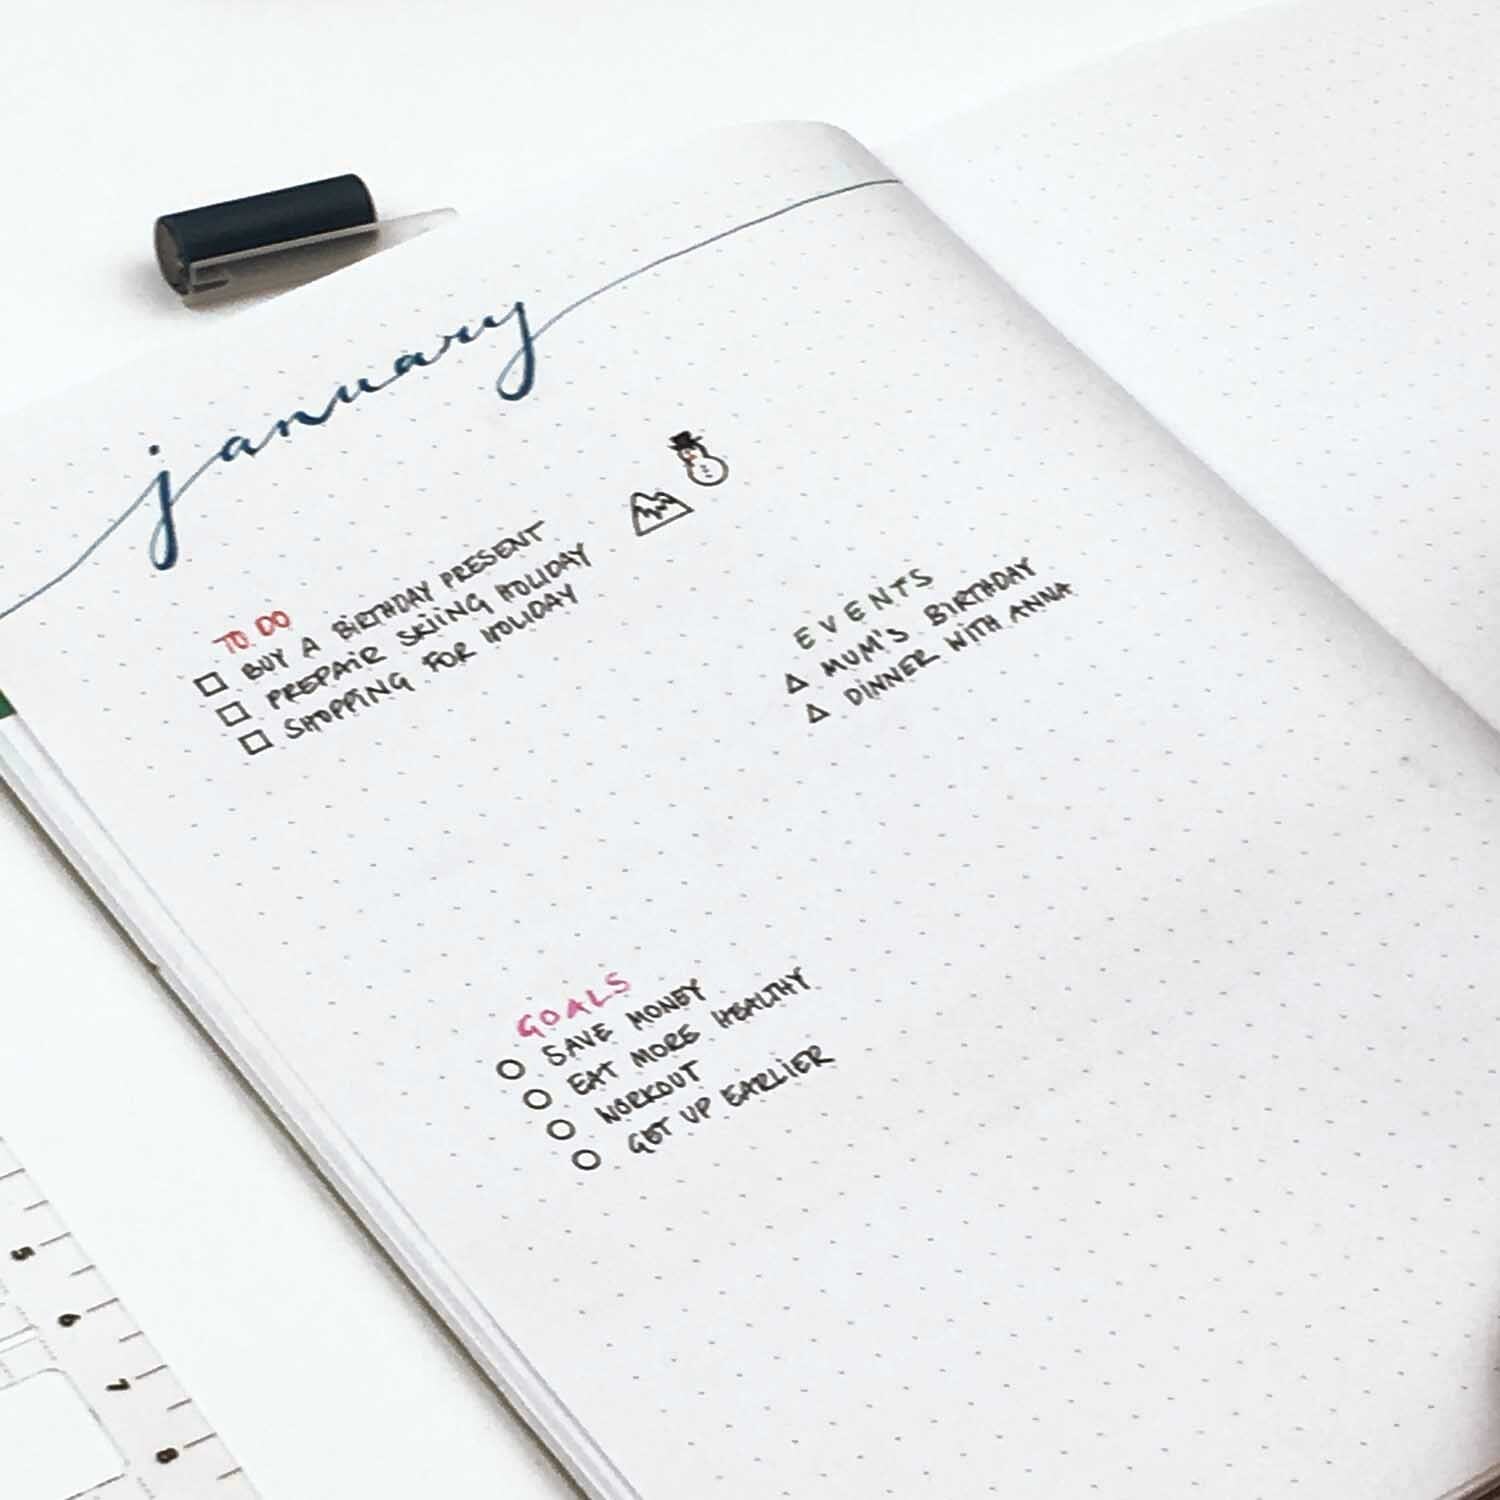 january
TO DO
BUY A BIRTHDAY PRESENT
PREPAIR SKIING HOLIDAY
SHOPPING FOR HOLIDAY
EVENTS
MUM'S BIRTHDAY
DINNER WITH ANNA
GOALS
SAVE MONEY
EAT MORE HEALTHY
WORKOUT
GET UP EARLIER
5
6
7
8